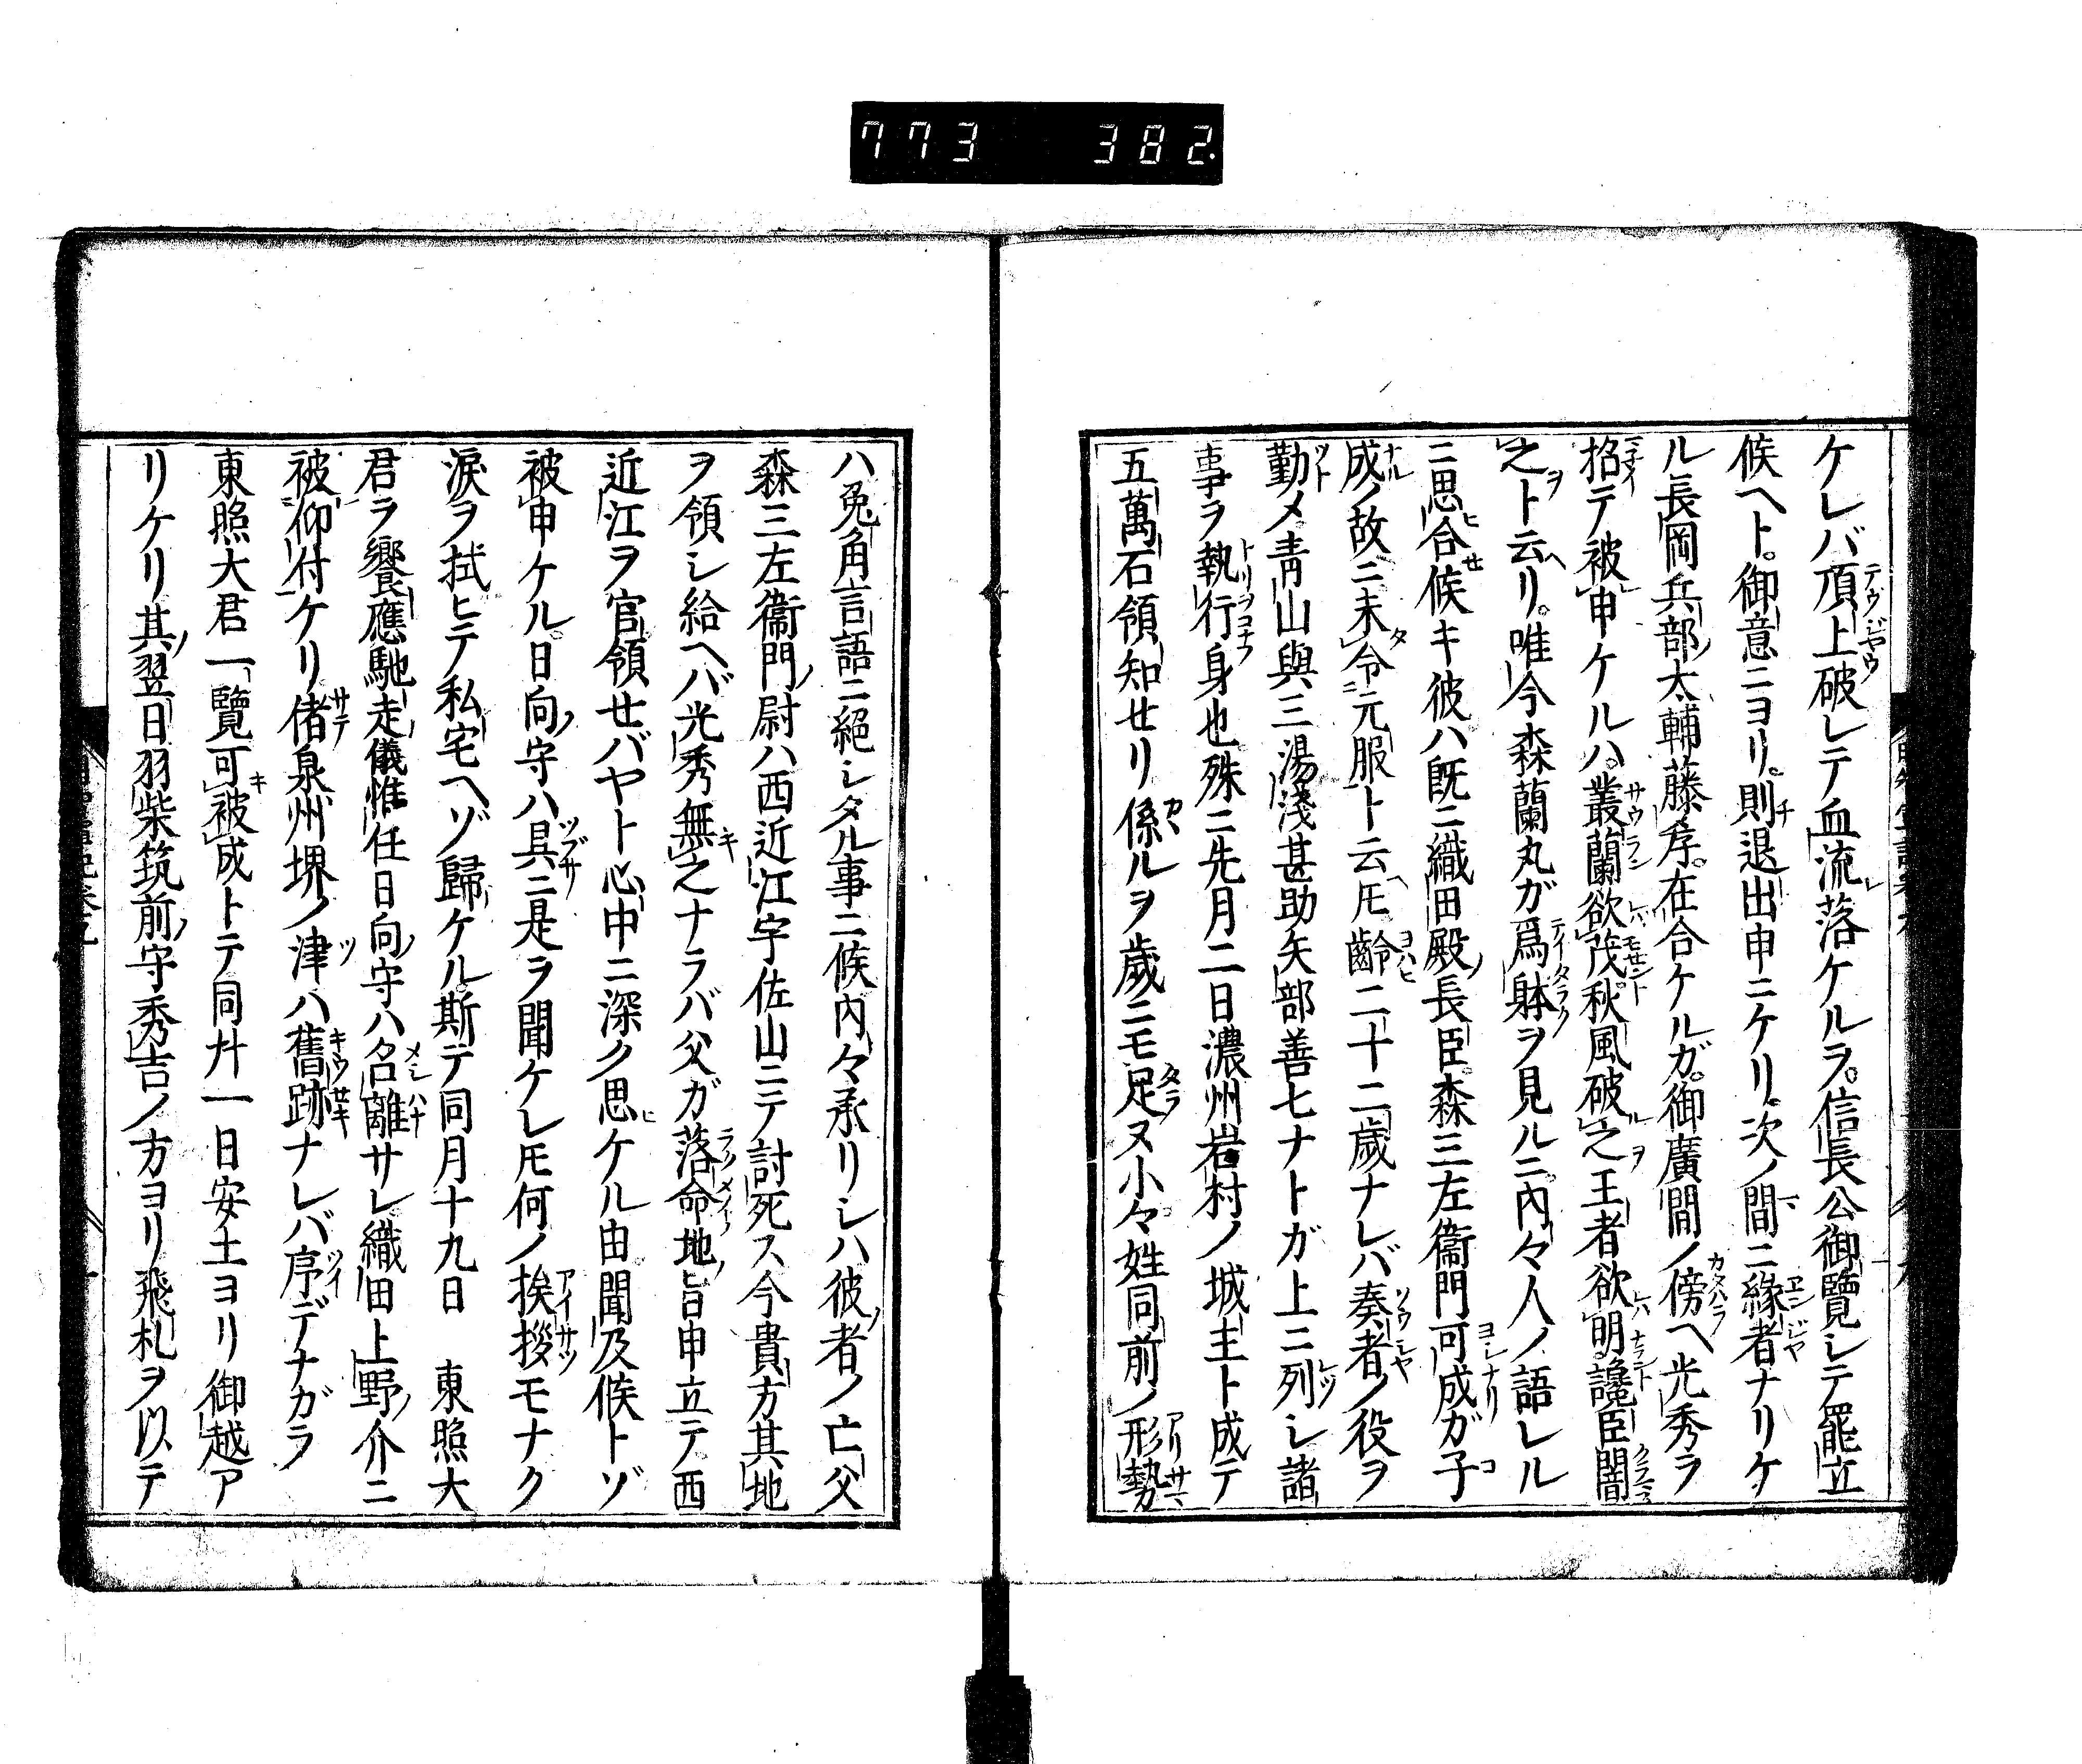 773 382
ケレバ頂上破レテ血流落ケルヲ。信長公御覽シテ罷立
候ヘト。御意ニヨリ。則退出申ニケリ。次ノ間ニ緣者ナリケ
ル長岡兵部太輔藤孝。在合ケルガ。御廣間ノ傍ヘ光秀ヲ
招テ被申ケルハ。叢蘭欲茂。秋風破之王者欲明。讒臣闇
之ト云リ。唯今森蘭丸ガ爲躰ヲ見ルニ。內々人ノ語レル
ニ思合候キ彼ハ既ニ織田殿ノ長臣。森三左衞門可成ガ子
成ノ故ニ未令元服ト云𪜈齡二十二歲ナレバ奏者ノ役ヲ
勤メ靑山與三湯淺甚助矢部善七ナトガ上ニ列シ諸
事ヲ執行身也殊ニ先月二日濃州岩村ノ城主ト成テ
五萬石領知セリ係ルヲ歲ニモ足ヌ小々姓同前ノ形勢
ハ兔角言語ニ絕シタル事ニ候內々承リシハ彼者ノ亡父
森三左衞門ノ尉ハ西近江宇佐山ニテ討死ス今貴方其地
ヲ領シ給ヘバ光秀無之ナラバ父ガ落命ノ地ノ旨申立テ西
近江ヲ官領セバヤト心中ニ深ク思ケル由聞及候トゾ
被申ケル。日向ノ守ハ具ニ是ヲ聞ケレ𪜈何ノ挨拶モナク
淚ヲ拭ヒテ私宅ヘゾ歸ケル。斯テ同月十九日 東照大
君ヲ饗應馳走儀惟任日向ノ守ハ召離サレ織田上野ノ介ニ
被仰付ケリ偖泉州堺ノ津ハ舊跡ナレバ序デナガラ
東照大君一覽可被成トテ同廿一日安土ヨリ御越ア
リケリ其ノ翌日羽柴筑前ノ守秀吉ノ方ヨリ飛札ヲ以テ